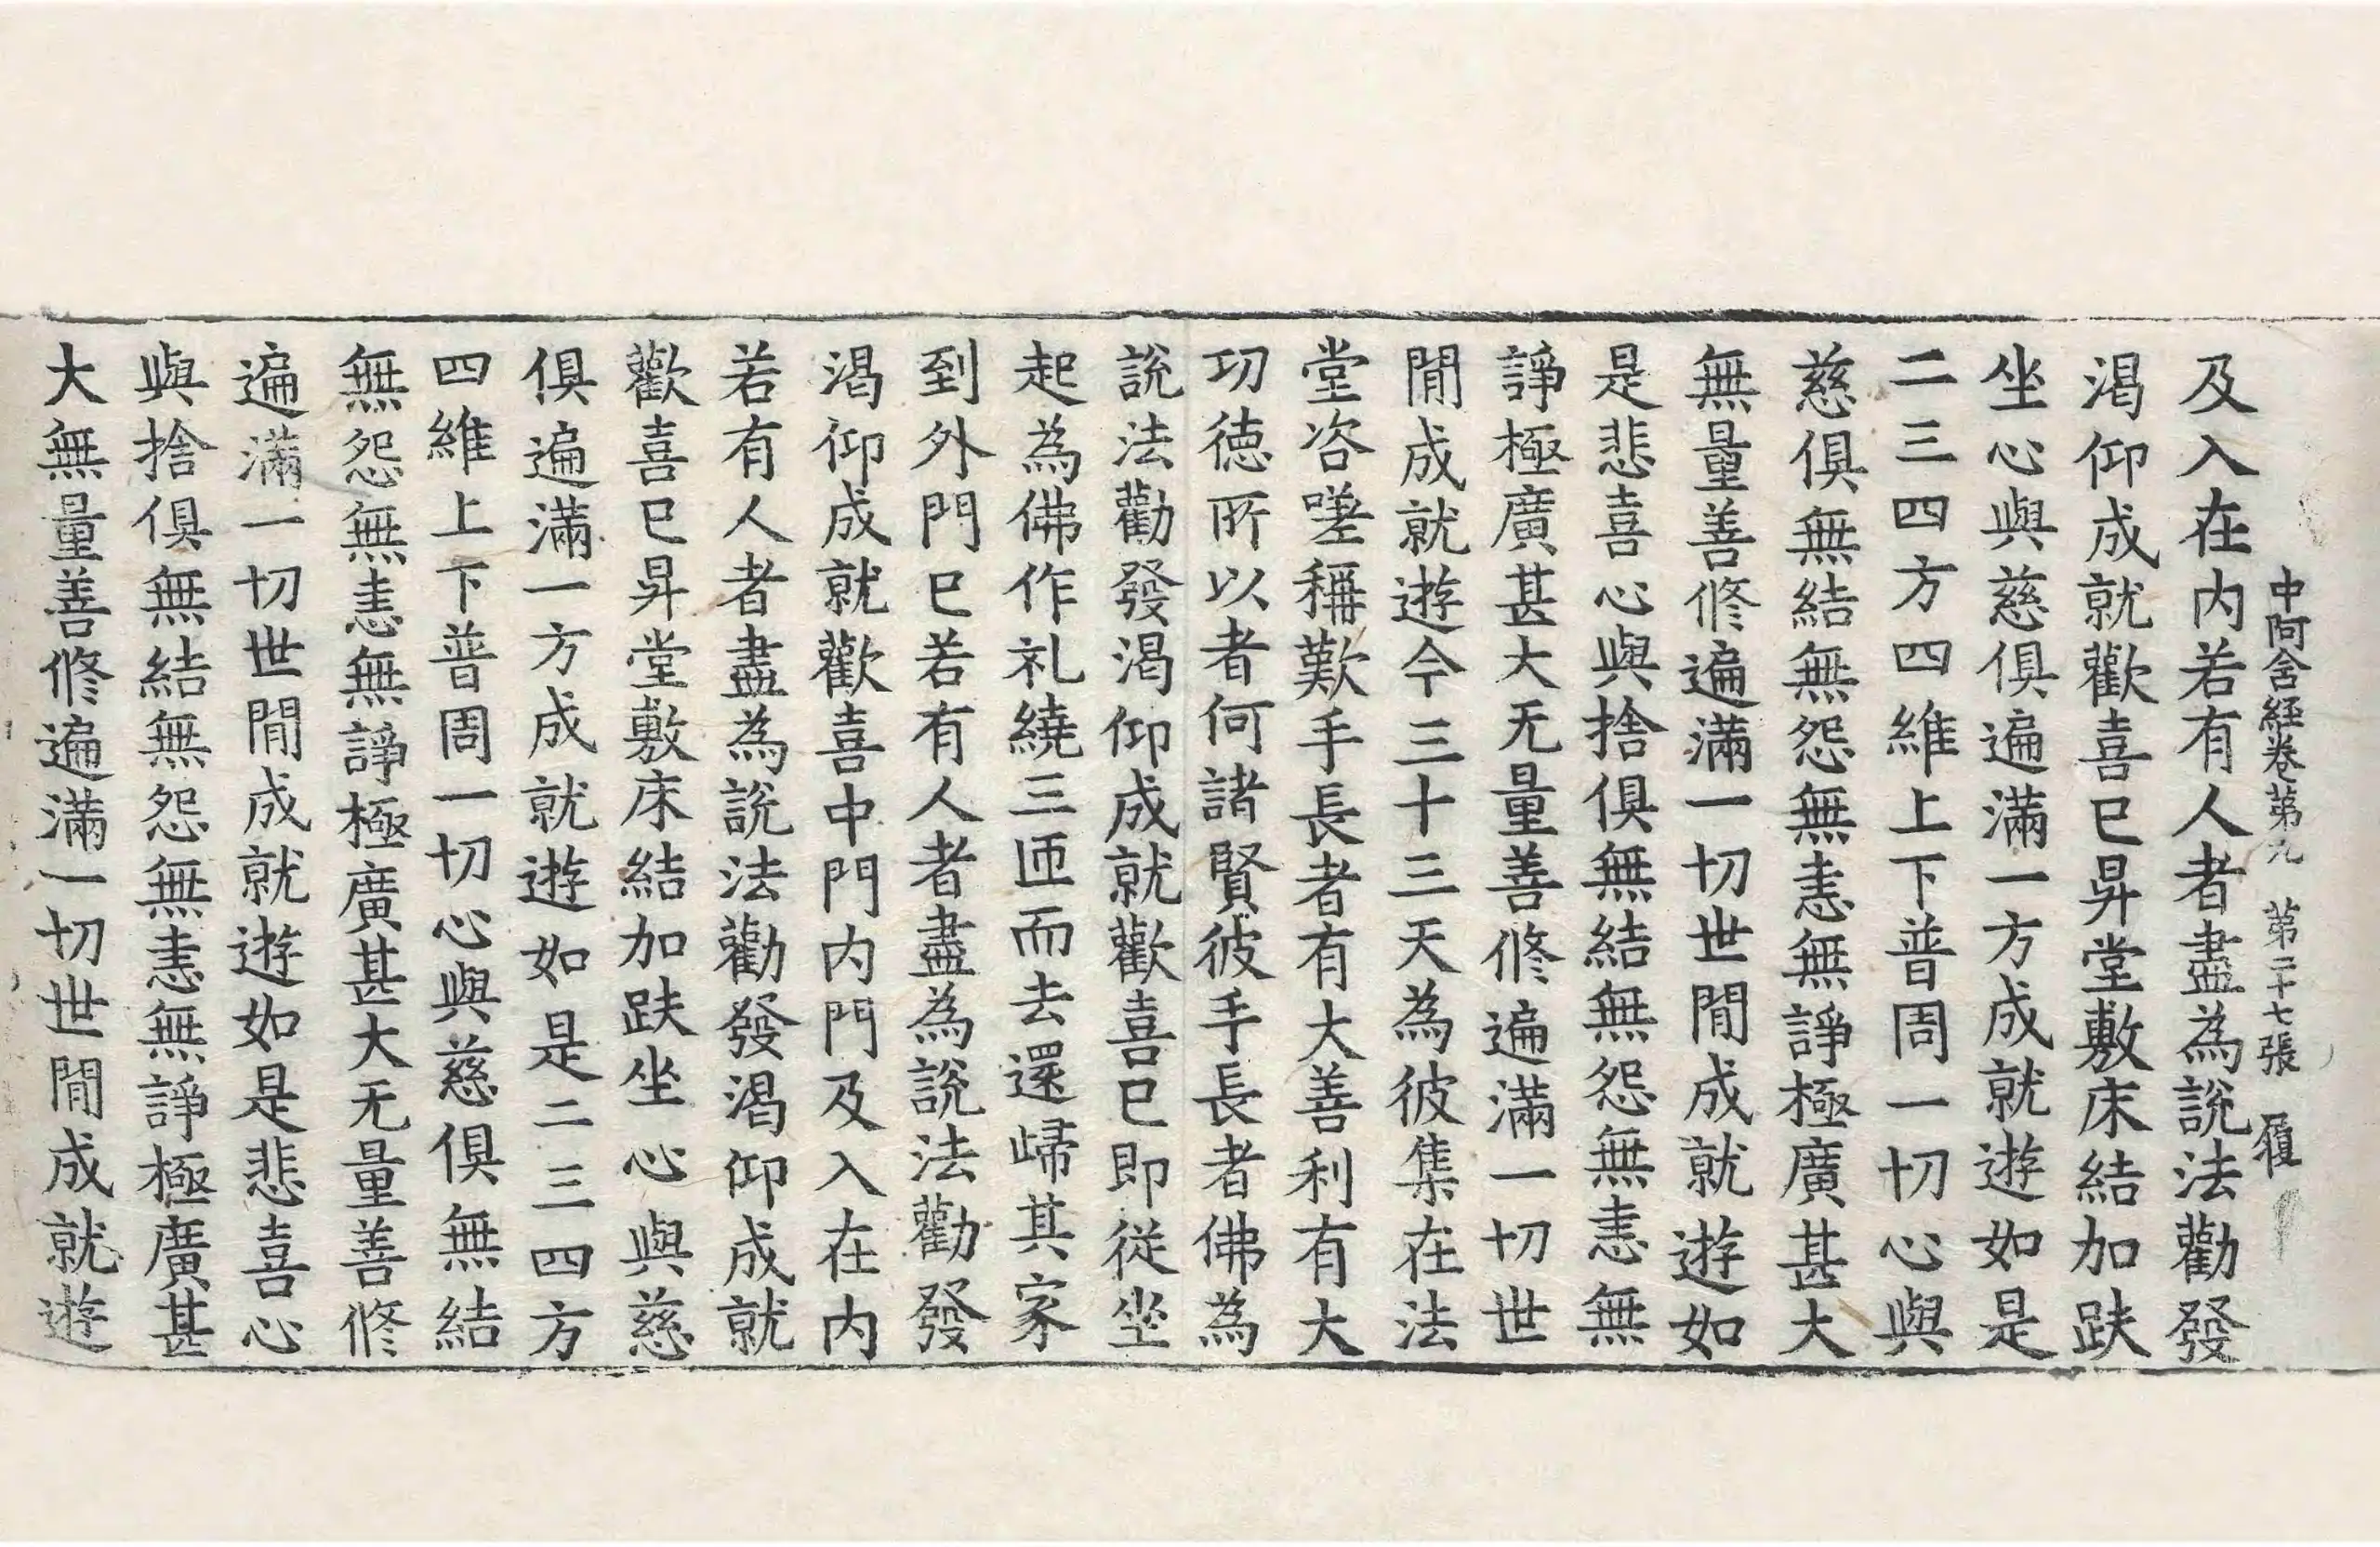 中阿含經卷第九　第二十七張　履
及入在内若有人者盡為說法勸發
渴仰成就歡喜已昇堂敷床結加趺
坐心與慈俱遍滿一方成就遊如是
二三四方四維上下普周一切心與
慈俱無結無怨無恚無諍極廣甚大
無量善修遍滿一切世間成就遊如
是悲喜心與捨俱無結無怨無恚無
諍極廣甚大无量善修遍滿一切世
間成就遊今三十三天為彼集在法
堂咨嗟稱歎手長者有大善利有大
功德所以者何諸賢彼手長者佛為
說法勸發渴仰成就歡喜已即從坐
起為佛作礼繞三匝而去還歸其家
到外門已若有人者盡為說法勸發
渴仰成就歡喜中門内門及入在内
若有人者盡為說法勸發渴仰成就
歡喜已昇堂敷床結加趺坐心與慈
俱遍滿一方成就遊如是二三四方
四維上下普周一切心與慈俱無結
無怨無恚無諍極廣甚大无量善修
遍滿一切世間成就遊如是悲喜心
與捨俱無結無怨無恚無諍極廣甚
大無量善修遍滿一切世間成就遊